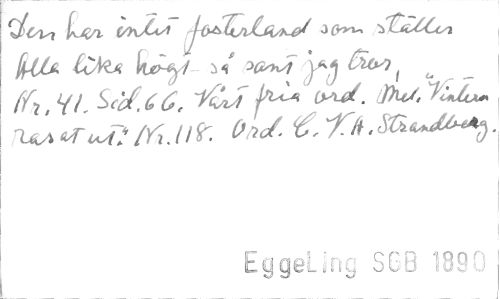 Den har intet fosterland som ställer
Alla lika högt så sant jag tror,
Nr. 41. Sid. 66. Vårt fria ord. Mel. "Vintern
rasat ut." Nr. 118. Ord. C. V. A. Strandberg.
EggeLing SGB 1890